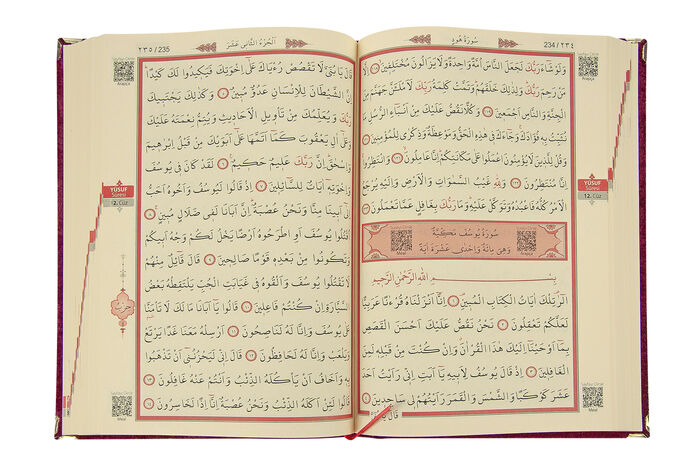 سُورَةُ هُودٍ
234 / ٢٣٤
وَلَوْ شَاءَ رَبُّكَ لَجَعَلَ النَّاسَ اُمَّةً وَاحِدَةً وَلَا يَزَالُونَ مُخْتَلِفِينَ ﴿١١٨﴾ اِلَّا
مَنْ رَحِمَ رَبُّكَ وَلِذٰلِكَ خَلَقَهُمْ وَتَمَّتْ كَلِمَةُ رَبِّكَ لَاَمْلَـَٔنَّ جَهَنَّمَ مِنَ
الْجِنَّةِ وَالنَّاسِ اَجْمَعِينَ ﴿١١٩﴾ وَكُلًّا نَقُصُّ عَلَيْكَ مِنْ اَنْبَاءِ الرُّسُلِ مَا
نُثَبِّتُ بِهِ فُؤَادَكَ وَجَاءَكَ فِي هٰذِهِ الْحَقُّ وَمَوْعِظَةٌ وَذِكْرٰى لِلْمُؤْمِنِينَ ﴿١٢٠﴾
وَقُلْ لِلَّذِينَ لَا يُؤْمِنُونَ اعْمَلُوا عَلٰى مَكَانَتِكُمْ اِنَّا عَامِلُونَ ﴿١٢١﴾ وَانْتَظِرُوا
اِنَّا مُنْتَظِرُونَ ﴿١٢٢﴾ وَلِلّٰهِ غَيْبُ السَّمٰوَاتِ وَالْاَرْضِ وَاِلَيْهِ يُرْجَعُ
الْاَمْرُ كُلُّهُ فَاعْبُدْهُ وَتَوَكَّلْ عَلَيْهِ وَمَا رَبُّكَ بِغَافِلٍ عَمَّا تَعْمَلُونَ ﴿١٢٣﴾
سُورَةُ يُوسُفَ مَكِّيَّةٌ
وَهِيَ مِائَةٌ وَاِحْدٰى عَشْرَةَ اٰيَةً
Meal
Arapça
بِسْمِ اللّٰهِ الرَّحْمٰنِ الرَّحِيمِ
الٓرٰ تِلْكَ اٰيَاتُ الْكِتَابِ الْمُبِينِ ﴿١﴾ اِنَّا اَنْزَلْنَاهُ قُرْاٰنًا عَرَبِيًّا
لَعَلَّكُمْ تَعْقِلُونَ ﴿٢﴾ نَحْنُ نَقُصُّ عَلَيْكَ اَحْسَنَ الْقَصَصِ
بِمَا اَوْحَيْنَا اِلَيْكَ هٰذَا الْقُرْاٰنَ وَاِنْ كُنْتَ مِنْ قَبْلِهِ لَمِنَ
الْغَافِلِينَ ﴿٣﴾ اِذْ قَالَ يُوسُفُ لِاَبِيهِ يَا اَبَتِ اِنِّي رَاَيْتُ اَحَدَ
عَشَرَ كَوْكَبًا وَالشَّمْسَ وَالْقَمَرَ رَاَيْتُهُمْ لِي سَاجِدِينَ ﴿٤﴾
قَالَ يَا بُنَيَّ
Arapça
YÛSUF
Sûresi
12. Cüz
Meal
اَلْجُزْءُ الثَّانِي عَشَرَ
٢٣٥ / 235
قَالَ يَا بُنَيَّ لَا تَقْصُصْ رُءْيَاكَ عَلٰى اِخْوَتِكَ فَيَكِيدُوا لَكَ كَيْدًا
اِنَّ الشَّيْطَانَ لِلْاِنْسَانِ عَدُوٌّ مُبِينٌ ﴿٥﴾ وَكَذٰلِكَ يَجْتَبِيكَ
رَبُّكَ وَيُعَلِّمُكَ مِنْ تَأْوِيلِ الْاَحَادِيثِ وَيُتِمُّ نِعْمَتَهُ عَلَيْكَ
وَعَلٰى اٰلِ يَعْقُوبَ كَمَا اَتَمَّهَا عَلٰى اَبَوَيْكَ مِنْ قَبْلُ اِبْرٰهِيمَ
وَاِسْحٰقَ اِنَّ رَبَّكَ عَلِيمٌ حَكِيمٌ ﴿٦﴾ لَقَدْ كَانَ فِي يُوسُفَ
وَاِخْوَتِهِ اٰيَاتٌ لِلسَّائِلِينَ ﴿٧﴾ اِذْ قَالُوا لَيُوسُفُ وَاَخُوهُ اَحَبُّ
اِلٰى اَبِينَا مِنَّا وَنَحْنُ عُصْبَةٌ اِنَّ اَبَانَا لَفِي ضَلَالٍ مُبِينٍ ﴿٨﴾
اُقْتُلُوا يُوسُفَ اَوِ اطْرَحُوهُ اَرْضًا يَخْلُ لَكُمْ وَجْهُ اَبِيكُمْ
وَتَكُونُوا مِنْ بَعْدِهِ قَوْمًا صَالِحِينَ ﴿٩﴾ قَالَ قَائِلٌ مِنْهُمْ
لَا تَقْتُلُوا يُوسُفَ وَاَلْقُوهُ فِي غَيَابَتِ الْجُبِّ يَلْتَقِطْهُ بَعْضُ
السَّيَّارَةِ اِنْ كُنْتُمْ فَاعِلِينَ ﴿١٠﴾ قَالُوا يَا اَبَانَا مَا لَكَ لَا تَأْمَنَّا
عَلٰى يُوسُفَ وَاِنَّا لَهُ لَنَاصِحُونَ ﴿١١﴾ اَرْسِلْهُ مَعَنَا غَدًا يَرْتَعْ
وَيَلْعَبْ وَاِنَّا لَهُ لَحَافِظُونَ ﴿١٢﴾ قَالَ اِنِّي لَيَحْزُنُنِي اَنْ تَذْهَبُوا
بِهِ وَاَخَافُ اَنْ يَأْكُلَهُ الذِّئْبُ وَاَنْتُمْ عَنْهُ غَافِلُونَ ﴿١٣﴾
قَالُوا لَئِنْ اَكَلَهُ الذِّئْبُ وَنَحْنُ عُصْبَةٌ اِنَّا اِذًا لَخَاسِرُونَ ﴿١٤﴾
Arapça
YÛSUF
Sûresi
12. Cüz
حزب
Meal